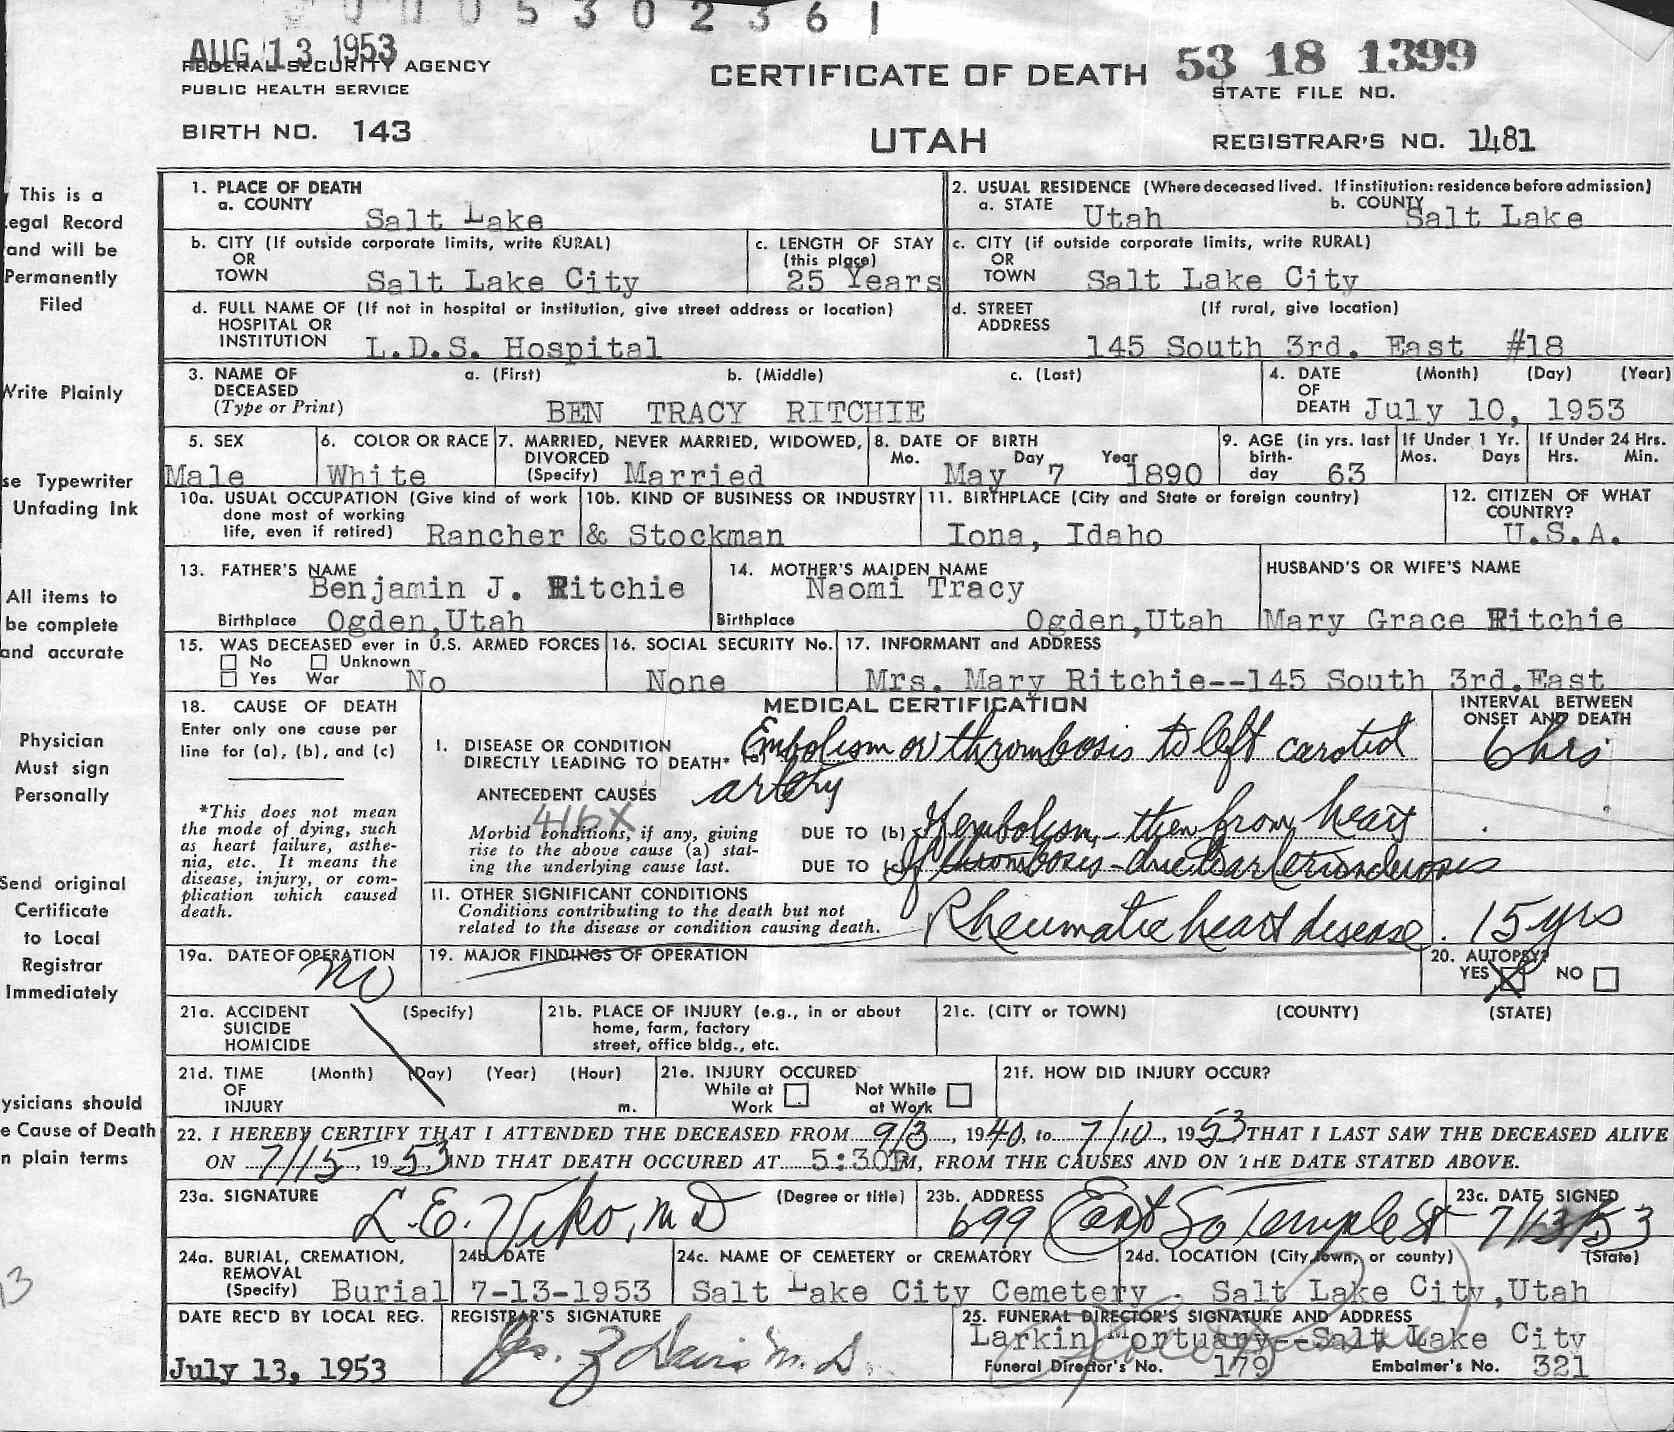 0005302361
AUG 13 1953
FEDERAL SECURITY AGENCY
PUBLIC HEALTH SERVICE
BIRTH NO. 143
CERTIFICATE OF DEATH
UTAH
53 18 1399
STATE FILE NO.
REGISTRAR'S NO. 1481
This is a
egal Record
and will be
Permanently
Filed
Write Plainly
se Typewriter
Unfading Ink
All items to
be complete
and accurate
Physician
Must sign
Personally
Send original
Certificate
to Local
Registrar
Immediately
ysicians should
e Cause of Death
n plain terms
13
1. PLACE OF DEATH
a. COUNTY Salt Lake
2. USUAL RESIDENCE (Where deceased lived. If institution: residence before admission)
a. STATE Utah b. COUNTY Salt Lake
b. CITY (If outside corporate limits, write RURAL)
OR
TOWN Salt Lake City
c. LENGTH OF STAY
(this place)
25 Years
c. CITY (if outside corporate limits, write RURAL)
OR
TOWN Salt Lake City
d. FULL NAME OF (If not in hospital or institution, give street address or location)
HOSPITAL OR
INSTITUTION L.D.S. Hospital
d. STREET (If rural, give location)
ADDRESS
145 South 3rd. East #18
3. NAME OF a. (First) b. (Middle) c. (Last)
DECEASED
(Type or Print) BEN TRACY RITCHIE
4. DATE (Month) (Day) (Year)
OF
DEATH July 10, 1953
5. SEX
Male
6. COLOR OR RACE
White
7. MARRIED, NEVER MARRIED, WIDOWED,
DIVORCED
(Specify) Married
8. DATE OF BIRTH
Mo. Day Year
May 7 1890
9. AGE (in yrs. last
birth-
day 63
If Under 1 Yr.
Mos. Days
If Under 24 Hrs.
Hrs. Min.
10a. USUAL OCCUPATION (Give kind of work
done most of working
life, even if retired) Rancher
10b. KIND OF BUSINESS OR INDUSTRY
& Stockman
11. BIRTHPLACE (City and State or foreign country)
Iona, Idaho
12. CITIZEN OF WHAT
COUNTRY?
U.S.A.
13. FATHER'S NAME
Benjamin J. Ritchie
Birthplace Ogden,Utah
14. MOTHER'S MAIDEN NAME
Naomi Tracy
Birthplace Ogden,Utah
HUSBAND'S OR WIFE'S NAME
Mary Grace Ritchie
15. WAS DECEASED ever in U.S. ARMED FORCES
No Unknown
Yes War No
16. SOCIAL SECURITY No.
None
17. INFORMANT and ADDRESS
Mrs. Mary Ritchie--145 South 3rd.East
18. CAUSE OF DEATH
Enter only one cause per
line for (a), (b), and (c)
*This does not mean
the mode of dying, such
as heart failure, asthe-
nia, etc. It means the
disease, injury, or com-
plication which caused
death.
MEDICAL CERTIFICATION
INTERVAL BETWEEN
ONSET AND DEATH
I. DISEASE OR CONDITION
DIRECTLY LEADING TO DEATH* (a) Embolism or thrombosis to left carotid
artery
6 hrs
ANTECEDENT CAUSES
416X
Morbid conditions, if any, giving
rise to the above cause (a) stat-
ing the underlying cause last.
DUE TO (b) If embolism, then from heart
DUE TO (c) If thrombosis - due to arteriosclerosis
11. OTHER SIGNIFICANT CONDITIONS
Conditions contributing to the death but not
related to the disease or condition causing death.
Rheumatic heart disease. 15 yrs
19a. DATE OF OPERATION
No
19. MAJOR FINDINGS OF OPERATION
20. AUTOPSY?
YES X NO
21a. ACCIDENT (Specify)
SUICIDE
HOMICIDE
21b. PLACE OF INJURY (e.g., in or about
home, farm, factory
street, office bldg., etc.
21c. (CITY or TOWN) (COUNTY) (STATE)
21d. TIME (Month) (Day) (Year) (Hour)
OF
INJURY m.
21e. INJURY OCCURED
While at Not While
Work at Work
21f. HOW DID INJURY OCCUR?
22. I HEREBY CERTIFY THAT I ATTENDED THE DECEASED FROM 9/3, 1940, to 7/10, 1953 THAT I LAST SAW THE DECEASED ALIVE
ON 7/15, 1953, AND THAT DEATH OCCURED AT 5:30PM, FROM THE CAUSES AND ON THE DATE STATED ABOVE.
23a. SIGNATURE (Degree or title)
L.E. Viko, MD
23b. ADDRESS
699 East So Temple St
23c. DATE SIGNED
7/13/53
24a. BURIAL, CREMATION,
REMOVAL
(Specify) Burial
24b. DATE
7-13-1953
24c. NAME OF CEMETERY or CREMATORY
Salt Lake City Cemetery .
24d. LOCATION (City, town, or county) (State)
Salt Lake City,Utah
DATE REC'D BY LOCAL REG.
July 13, 1953
REGISTRAR'S SIGNATURE
M.D.
25. FUNERAL DIRECTOR'S SIGNATURE AND ADDRESS
Larkin Mortuary--Salt Lake City
Funeral Director's No. 179 Embalmer's No. 321